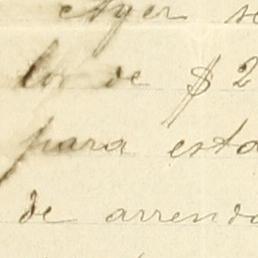 Ayer se
lor de $ 2
para esta
de arrenda